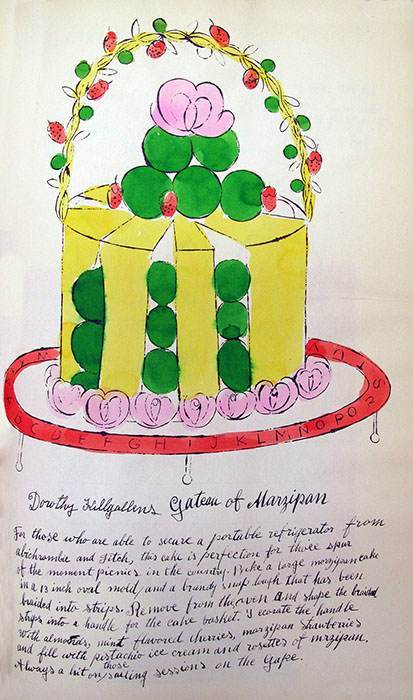 W T U V
A B C D E F G H I J K L M N O P Q R S
Dorothy Killgallens Gateau of Marzipan
For those who are able to secure a portable refrigerator from
abichrombie and Fitch, this cake is perfection for those spur
of the moment picnics in the country. Bake a large marzipan cake
in a 13 inch oval mold, and a brandy snap dough that has been
braided into strips. Remove from the oven and shape the braided
strips into a handle for the cake basket. Decorate the handle
with almonds, mint flavored cheries, marzipan strawberries
and fill with pistachio ice cream and rosettes of mrzipan.
Always a hit on those sailing sessions on the Cape.